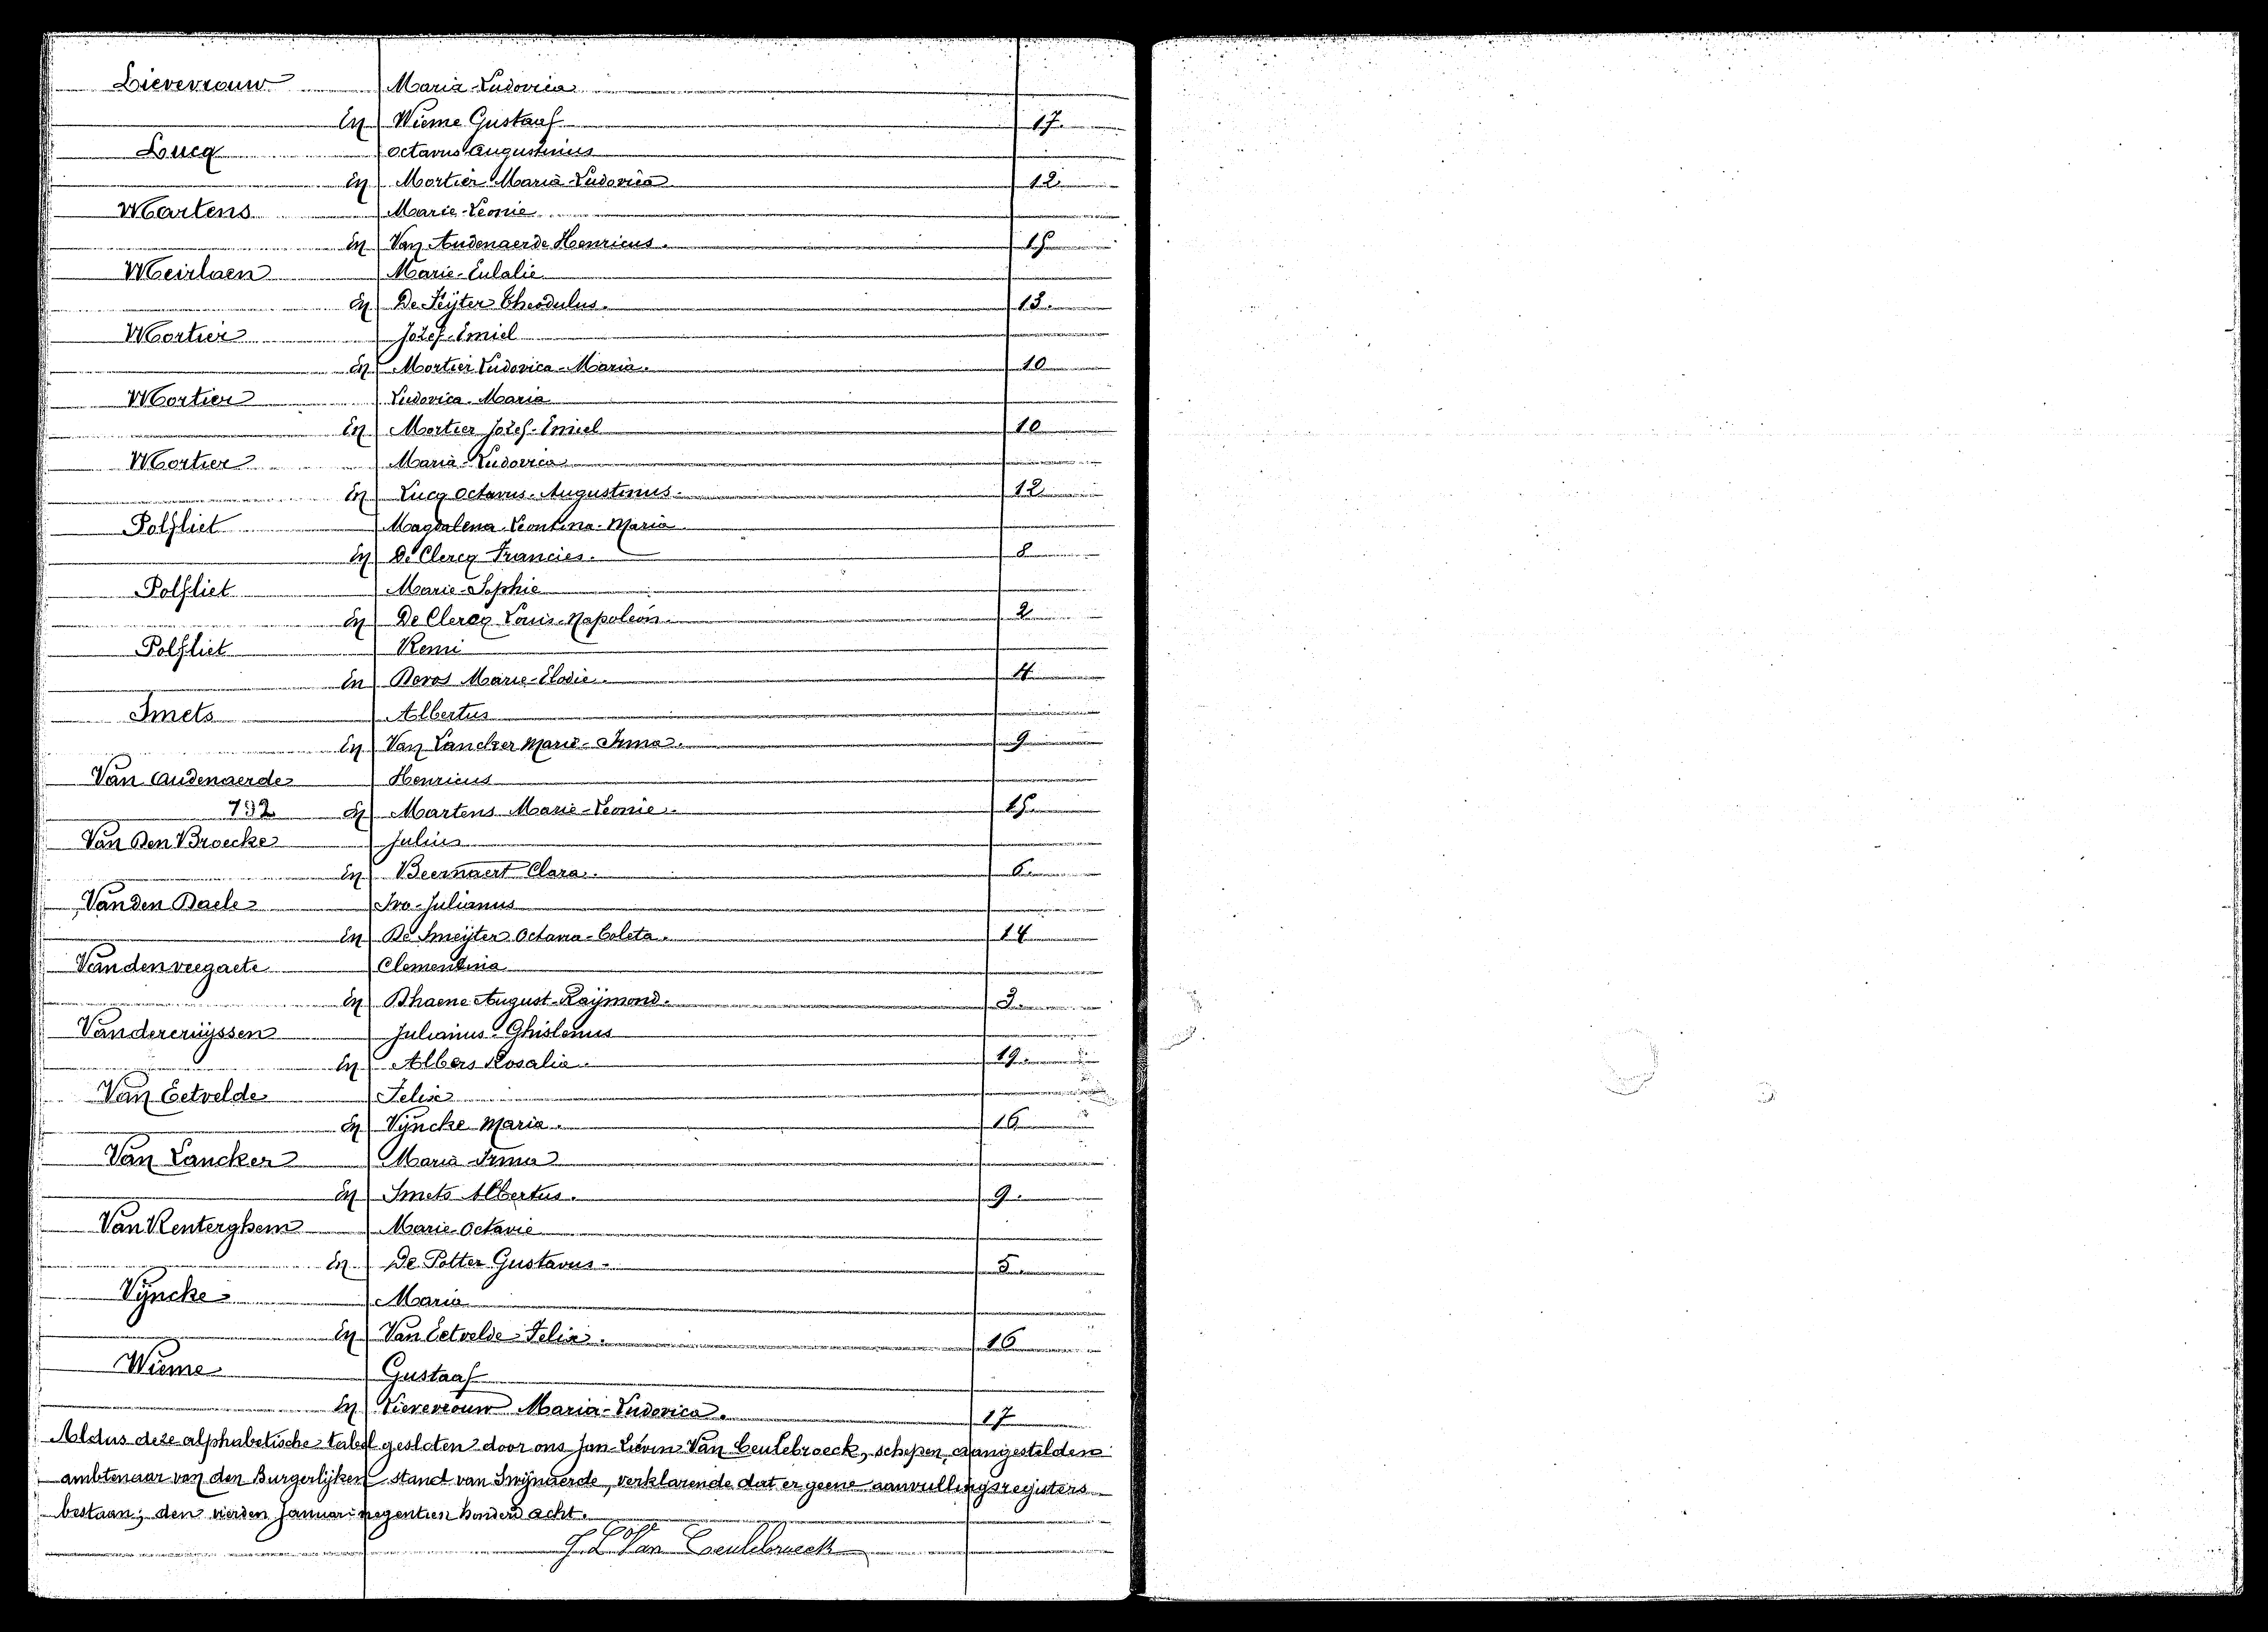 Lievevrouw Maria-Ludovica
En Wieme Gustaaf 17.
Lucq Octavus Augustinus
En Mortier Maria Ludovica 12
Martens Marie-Leonie
En Van Audenaerde Henricus. 15
Meirlaen Marie-Eulalie
En De Pijter Theodulus. 13.
Mortier Jozef-Emiel
En Mortier Ludovica-Maria. 10
Mortier Ludovica-Maria
En Mortier Jozef-Emiel 10
Mortier Maria-Ludovica
En Lucq Octavus-Augustinus. 12
Polfliet Magdalena-Leontina-Maria
En De Clercq Francies. 8
Polfliet Marie-Sophie
En De Clercq Louis-Napoleon. 2
Polfliet Remi
En Marie-Elodie. 4
Smets Albertus
En Van Lancker Marie-Irma. 9
Van Audenaerde Henricus
792 En Martens Marie-Leonie. 15
Van Den Broecke Julius
En Beernaert Clara. 6.
Van den Daele Ivo-Julianus
En De Smeijter Octavia-Coleta. 14
Vandenveegaete Clementina
En Dhaene August-Raijmond. 3.
Vandercruijssen Julianus-Ghislenus
En Albers Rosalie. 19.
Van Eetvelde Felix
En Vijncke Maria. 16
Van Lancker Maria Irma
En Smets Albertus. 9.
Van Renterghem Marie-Octavie
En De Potter Gustavus. 5.
Vijncke Maria
En Van Eetvelde Felix. 16
Wieme Gustaaf
En Lievevrouw Maria-Ludovica. 17
Aldus deze alphabetische tabel gesloten door ons Jan-Lievin Van Ceulebroeck, schepen, aangestelden
ambtenaar van den Burgerlijken stand van Swijnaerde, verklarende dat er geene aanvullingsregisters
bestaan; den vierden Januari negentien honderd acht.
J. L. Van Ceulebroeck